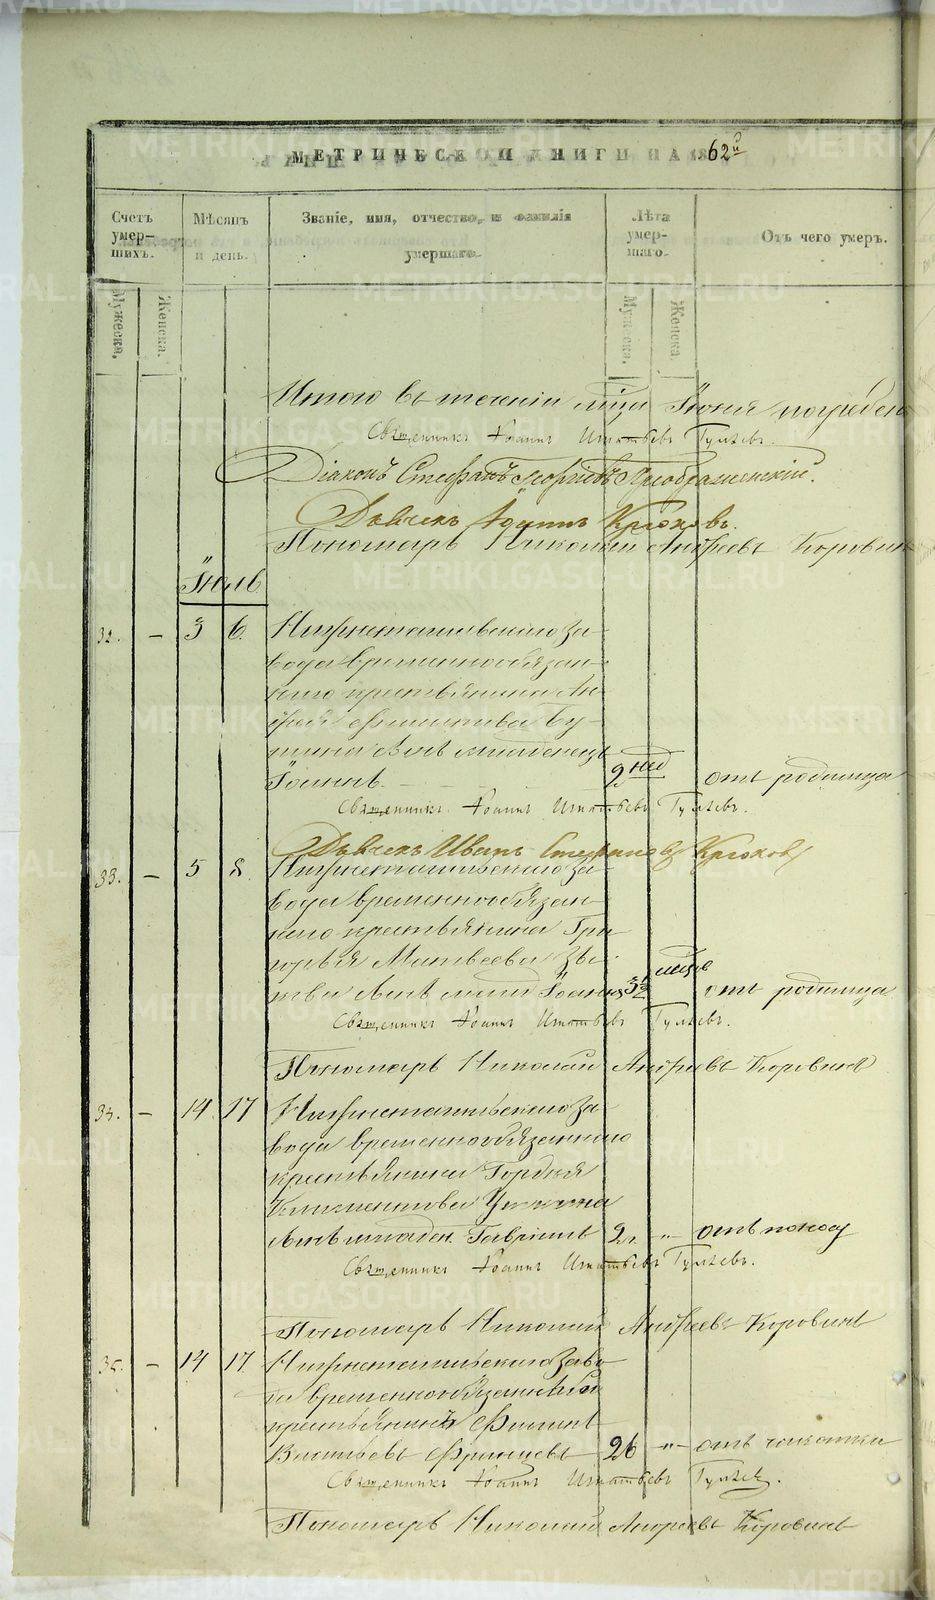 МЕТРИЧЕСКОЙ КНИГИ НА 1862й
Счетъ умер- шихъ.
Мѣсяцъ и день.
Званіе, имя, отчество, и фамилія умершаго.
Лѣта умер- шаго.
Отъ чего умеръ.
Мужеска.
Женска.
Мужеска.
Женска.
Итого въ теченіи мѣсяца Іюня погребен
Священникъ Іоаннъ Игнатьевъ
Діаконъ Стефанъ Преображенскій.
Дьячекъ Іоаннъ Крюковъ.
Пономарь Николай Андреевъ Коровин
Іюль
32. — 3 6. Нижнетагильскаго за-
вода временнообязан-
наго крестьянина Ан-
дрея Филиппова
сынъ младенецъ
Іоаннъ. 2 нед отъ родимца
Священникъ Іоаннъ Игнатьевъ
Дьячекъ Иванъ Стефановъ Крюковъ
33. — 5 8. Нижнетагильскаго за-
вода временнообязан-
наго крестьянина Гри-
горья Матвеева
сынъ млад Іоаннъ 3½ отъ родимца
Священникъ Іоаннъ Игнатьевъ
Пономарь Николай Андреевъ Коровинъ
34. — 14 17 Нижнетагильскаго за-
вода временнообязаннаго
крестьянина Гордѣя
Климентова
сынъ младен. Гавріилъ 2 г. „ отъ поносу
Священникъ Іоаннъ Игнатьевъ
Пономарь Николай Андреевъ Коровинъ
35. — 14 17. Нижнетагильскаго заво-
да временнообязанный
крестьянинъ Филиппъ
26 „ отъ чахотки
Священникъ Іоаннъ Игнатьевъ
Пономарь Николай Андреевъ Коровинъ
METRIKI.GASO-URAL.RU